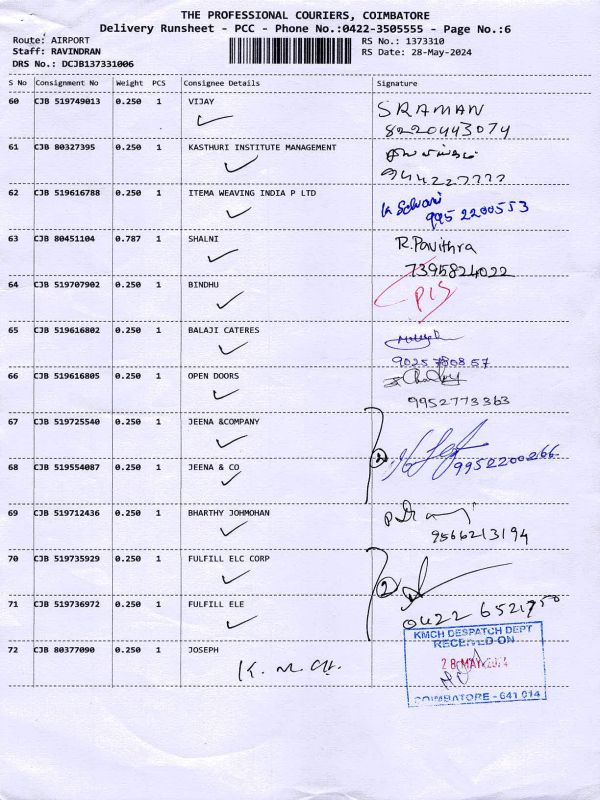 THE PROFESSIONAL COURIERS, COIMBATORE
Delivery Runsheet - PCC - Phone No.:0422-3505555 - Page No.:6
Route: AIRPORT RS No.: 1373310
Staff: RAVINDRAN RS Date: 28-May-2024
DRS No.: DCJB137331006
S No Consignment No Weight PCS Consignee Details Signature
60 CJB 519749013 0.250 1 VIJAY SRAMAN
8220443074
61 CJB 80327395 0.250 1 KASTHURI INSTITUTE MANAGEMENT
62 CJB 519616788 0.250 1 ITEMA WEAVING INDIA P LTD K Selvani
995 2200553
63 CJB 80451104 0.787 1 SHALNI R. Pavithra
7395824022
64 CJB 519707902 0.250 1 BINDHU
65 CJB 519616802 0.250 1 BALAJI CATERES
66 CJB 519616805 0.250 1 OPEN DOORS
9952773363
67 CJB 519725540 0.250 1 JEENA &COMPANY
2
9952200266
68 CJB 519554087 0.250 1 JEENA & CO
69 CJB 519712436 0.250 1 BHARTHY JOHMOHAN
9566213194
70 CJB 519735929 0.250 1 FULFILL ELC CORP
2
71 CJB 519736972 0.250 1 FULFILL ELE
0422 6521750
72 CJB 80377090 0.250 1 JOSEPH
K. M. CH.
KMCH DESPATCH DEPT
RECEIVED ON
28 MAY 2024
COIMBATORE - 641 014